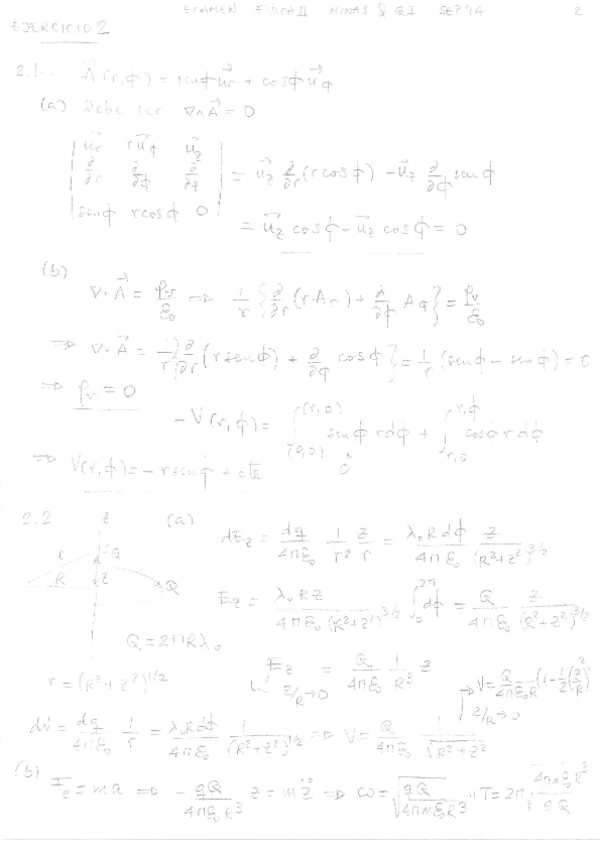 EXAMEN FISICA II MINAS & QI SEP'14 2
EJERCICIO 2
2.1.. A⃗(r,ϕ) = senϕ u⃗r + cosϕ u⃗ϕ
(a) Debe ser ∇∧A⃗ = 0
| u⃗r r u⃗ϕ u⃗z |
| ∂/∂r ∂/∂ϕ ∂/∂z | = u⃗z ∂/∂r (r cosϕ) - u⃗z ∂/∂ϕ senϕ
| senϕ r cosϕ 0 |
= u⃗z cosϕ - u⃗z cosϕ = 0
(b)
∇·A⃗ = ρv/ε0 ⇒ 1/r {∂/∂r (r Ar) + ∂/∂ϕ Aϕ} = ρv/ε0
⇒ ∇·A⃗ = 1/r {∂/∂r (r senϕ) + ∂/∂ϕ cosϕ} = 1/r (senϕ - senϕ) = 0
⇒ ρv = 0
- V(r,ϕ) = ∫(0,0)^(r,0) senϕ r dϕ + ∫r,0^r,ϕ cosϕ r dϕ
0
⇒ V(r,ϕ) = - r senϕ + cte
2.2 z (a) dEz = dq/4πε0 1/r² z/r = λ0 R dϕ/4πε0 z/(R²+z²)^3/2
r q
R z Q
Ez = λ0 R z/4πε0 (R²+z²)^3/2 ∫0^2π dϕ = Q/4πε0 z/(R²+z²)^3/2
Q = 2πRλ0
r = (R²+z²)^1/2
Ez = Q/4πε0 1/R³ z
z/R→0
→ V = Q/4πε0R (1 - 1/2 (z/R)²)
z/R→0
dV = dq/4πε0 1/r = λ0 R dϕ/4πε0 1/(R²+z²)^1/2 ⇒ V = Q/4πε0 1/√(R²+z²)
(b) = ma ⇒ - qQ/4πε0R³ z = m z̈ ⇒ ω = √(qQ/4πmε0R³) " T = 2π √(4πmε0R³/qQ)